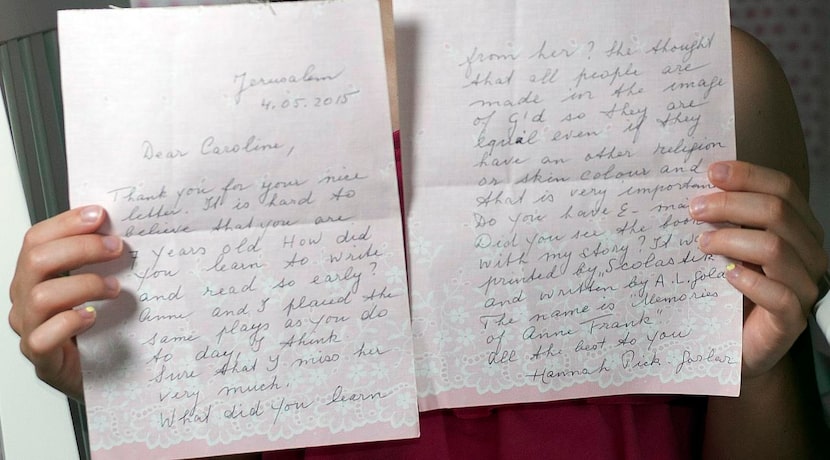 Jerusalem
4.05.2015
Dear Caroline,
Thank you for your nice
letter. It is hard to
believe that you are
7 years old. How did
you learn to write
and read so early?
Anne and I placed the
same plays as you do
to day, I think
Sure that I miss her
very much.
What did you learn
from her? She thought
that all people are
made in the image
of G'd so they are
equal even if they
have an other religion
or skin colour and
that is very important
Do you have E-ma
Did you see the book
with my story? It w
printed by „Scolastik
and written by A. L. Gold
The name is "Memories
of Anne Frank"
all the best to you
Hannah Pick-Goslar